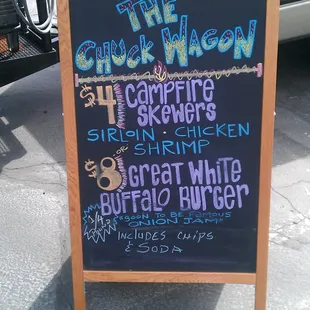 THE
CHUCK WAGON
$4 CAMPFIRE
SKEWERS
SIRLOIN · CHICKEN
OR SHRIMP
$8 GREAT WHITE
BUFFALO BURGER
SOON TO BE FAMOUS
ONION JAM
INCLUDES CHIPS
& SODA